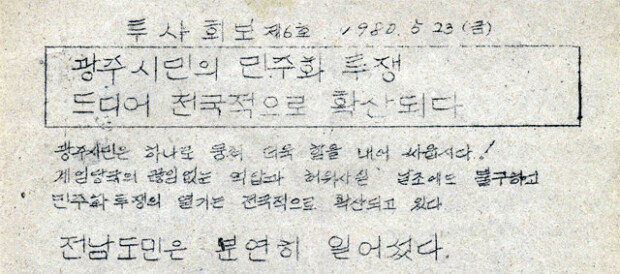 투사회보 제6호 1980. 5 23 (금)
광주시민의 민주화 투쟁
드디어 전국적으로 확산되다
광주시민은 하나로 뭉쳐 더욱 힘을 내어 싸웁시다.!
계엄당국의 끊임없는 억압과 허위사실 날조에도 불구하고
민주화 투쟁의 열기는 전국적으로 확산되고 있다
전남도민은 분연히 일어섰다.